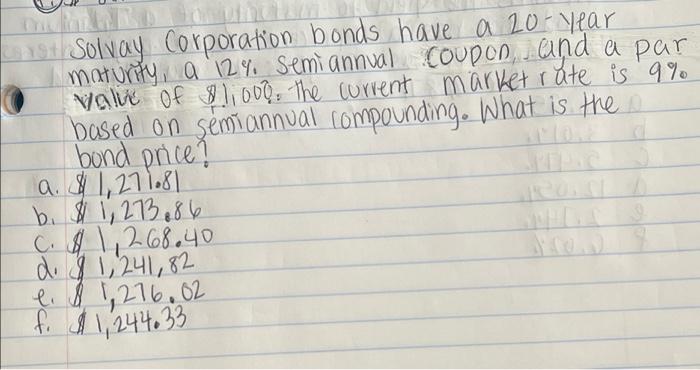 Solvay Corporation bonds have a 20-year
maturity, a 12% semiannual coupon, and a par
value of $1,000. The current market rate is 9%
based on semiannual compounding. What is the
bond price?
a. $ 1,271.81
b. $ 1,273.86
c. $ 1,268.40
d. $ 1,241,82
e. $ 1,276.02
f. $ 1,244.33